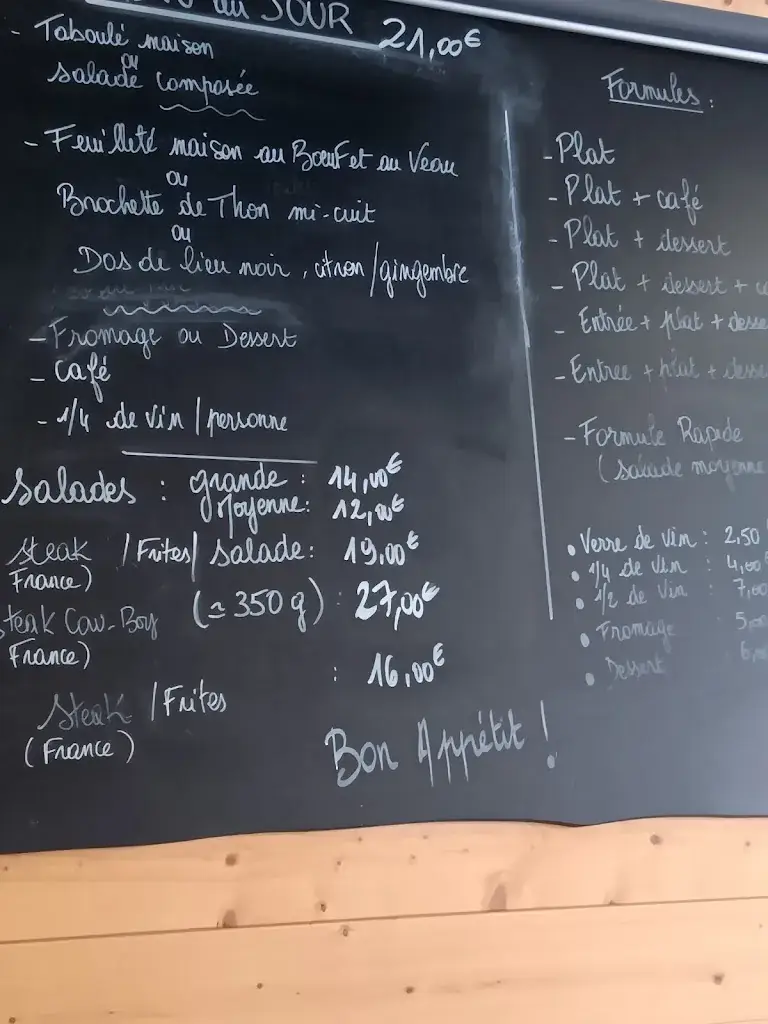 au JOUR 21,00€
- Taboulé maison
ou
salade composée
- Feuilleté maison au Bœuf et au Veau
ou
Brochette de Thon mi-cuit
ou
Dos de lieu noir, citron/gingembre
- Fromage ou Dessert
- Café
- 1/4 de vin / personne
Salades : grande : 14,00€
Moyenne : 12,00€
Steak / Frites / salade : 19,00€
France)
Steak Cow-Boy (≃ 350 g) : 27,00€
France)
: 16,00€
Steak / Frites
(France)
Bon Appétit !
Formules :
- Plat
- Plat + café
- Plat + dessert
- Plat + dessert + ca
- Entrée + plat + desse
- Entree + plat + desse
- Formule Rapide
(salade moyenne
• Verre de vin : 2,50
• 1/4 de vin : 4,00
• 1/2 de vin : 7,00
• Fromage 5,00
• Dessert